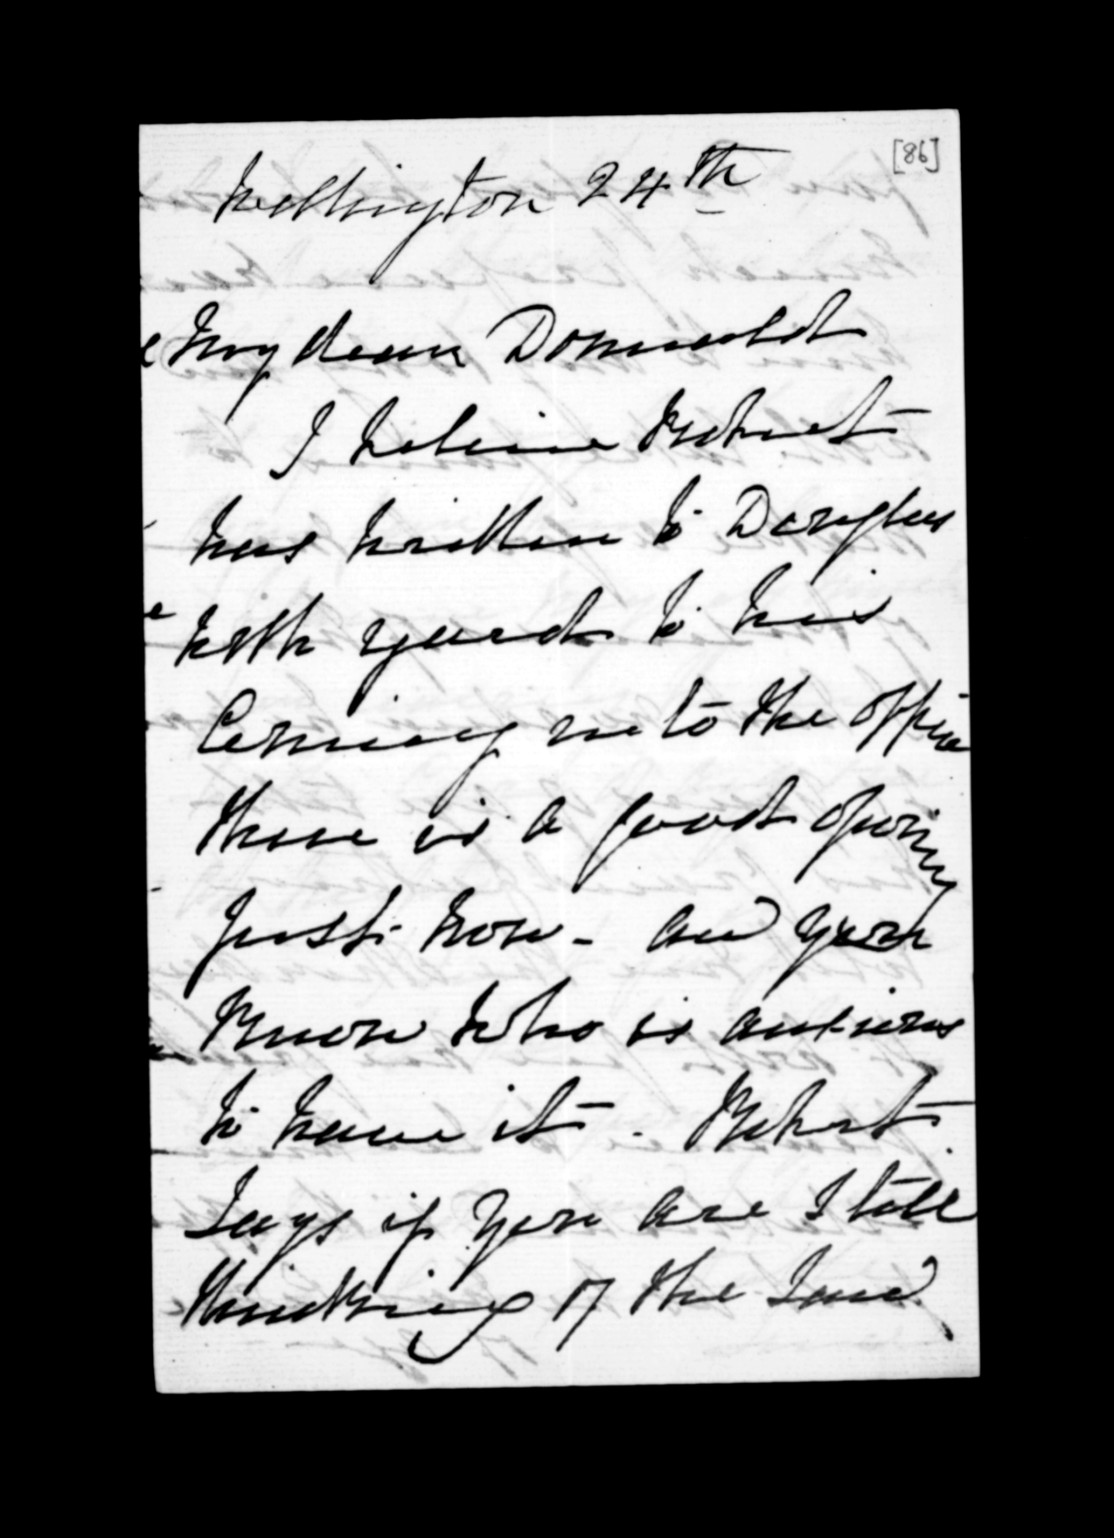 [86]
Wellington 24th
My dear Donald
I believe Robert
has written to Douglas
with regard to his
Coming into the office
there is a good opening
just now - and you
know who is anxious
to have it. Robert
Says if you are still
thinking of the Law